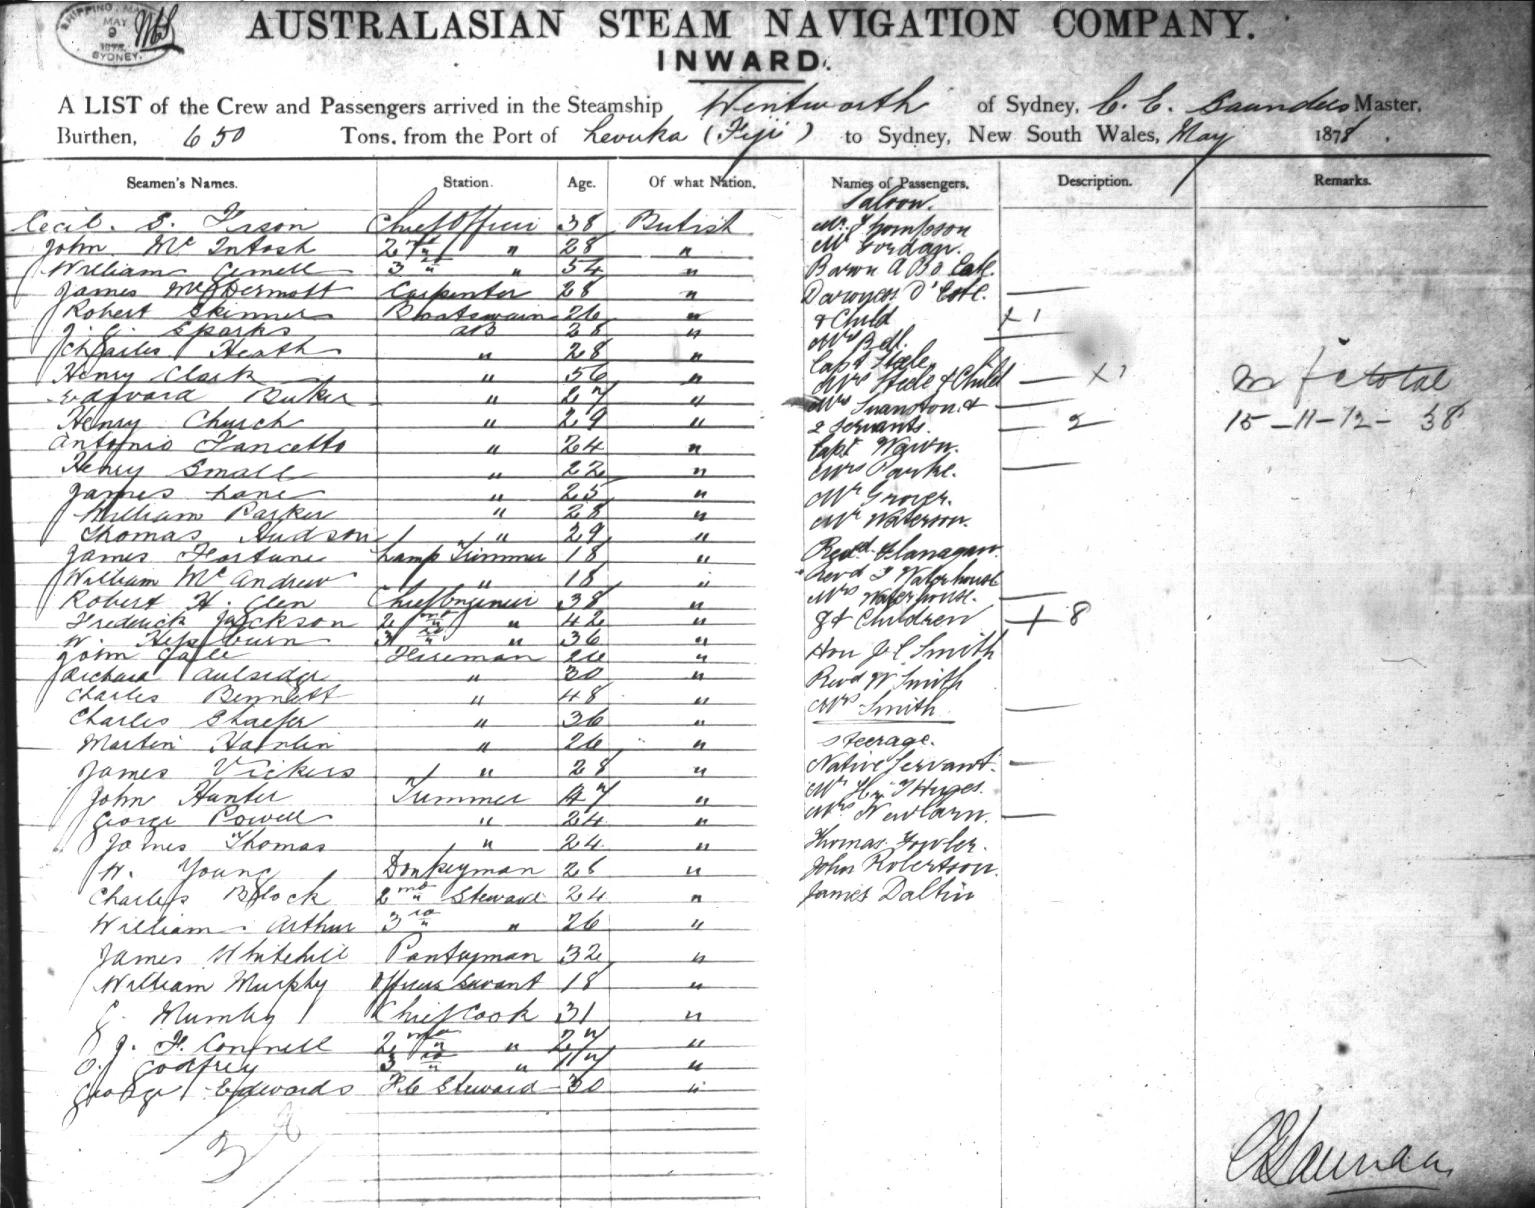 SHIPPING MA
MAY
9
1878
SYDNEY.
AUSTRALASIAN STEAM NAVIGATION COMPANY.
INWARD.
A LIST of the Crew and Passengers arrived in the Steamship Wentworth of Sydney, C. E. Saunders Master,
Burthen, 650 Tons, from the Port of Levuka (Fiji) to Sydney, New South Wales, May 1878.
Seamen's Names. Station. Age. Of what Nation.
Cecil. S. Chief Officer 38 British
John McIntosh 2nd " 28 "
William 3rd " 54 "
James McDermott Carpenter 28 "
Robert Skinner Boatswain 26 "
J. C. Sparks AB 28 "
Charles Heath " 28 "
Henry Clark " 56 "
Edward Buker " 27 "
Henry Church " 29 "
Antonio Fancetto " 24 "
Henry Small " 22 "
James Lane " 25 "
William Parker " 28 "
Thomas Hudson " 29 "
James Fortune Lamp Trimmer 18 "
William McAndrew " 18 "
Robert H. Glen Chief Engineer 38 "
Frederick Jackson 2nd " 42 "
W. Hepburn 3rd " 36 "
John Gale Fireman 26 "
Richard " 30 "
Charles Bennett " 48 "
Charles Shaefer " 36 "
Martin Hamlin " 26 "
James Vickers " 28 "
John Hunter Trimmer 47 "
George Powell " 24 "
James Thomas " 24 "
W. Young Donkeyman 28 "
Charles Block 2nd Steward 24 "
William Arthur 3rd " 26 "
James Whitehill Pantryman 32 "
William Murphy Officers Servant 18 "
J. Mumby Chief Cook 31 "
J. F. Connell 2nd " 27 "
O. Godfrey 3rd " 17 "
George Edwards F.C Steward 30 "
Names of Passengers. Description. Remarks.
Saloon.
Mr Thompson
Mr Cordan.
Baron
Baroness
& Child + 1
Mrs Bell.
Capt Steele
Mrs Steele & Child — x 1
Mrs Swanston &
2 Servants. — 2
Capt Wawn.
Mrs Parke.
Mr
Mr Waterson.
Revd Flanagan.
Revd J Waterhouse
Mrs Waterhouse.
8 Children + 8
Hon J C Smith
Revd W Smith
Mrs Smith
Steerage.
Native Servant.
Mr
Mrs Newbarn.
Thomas Fowler.
John Robertson.
James Daltin
m f c total
15 - 11 - 12 - 38